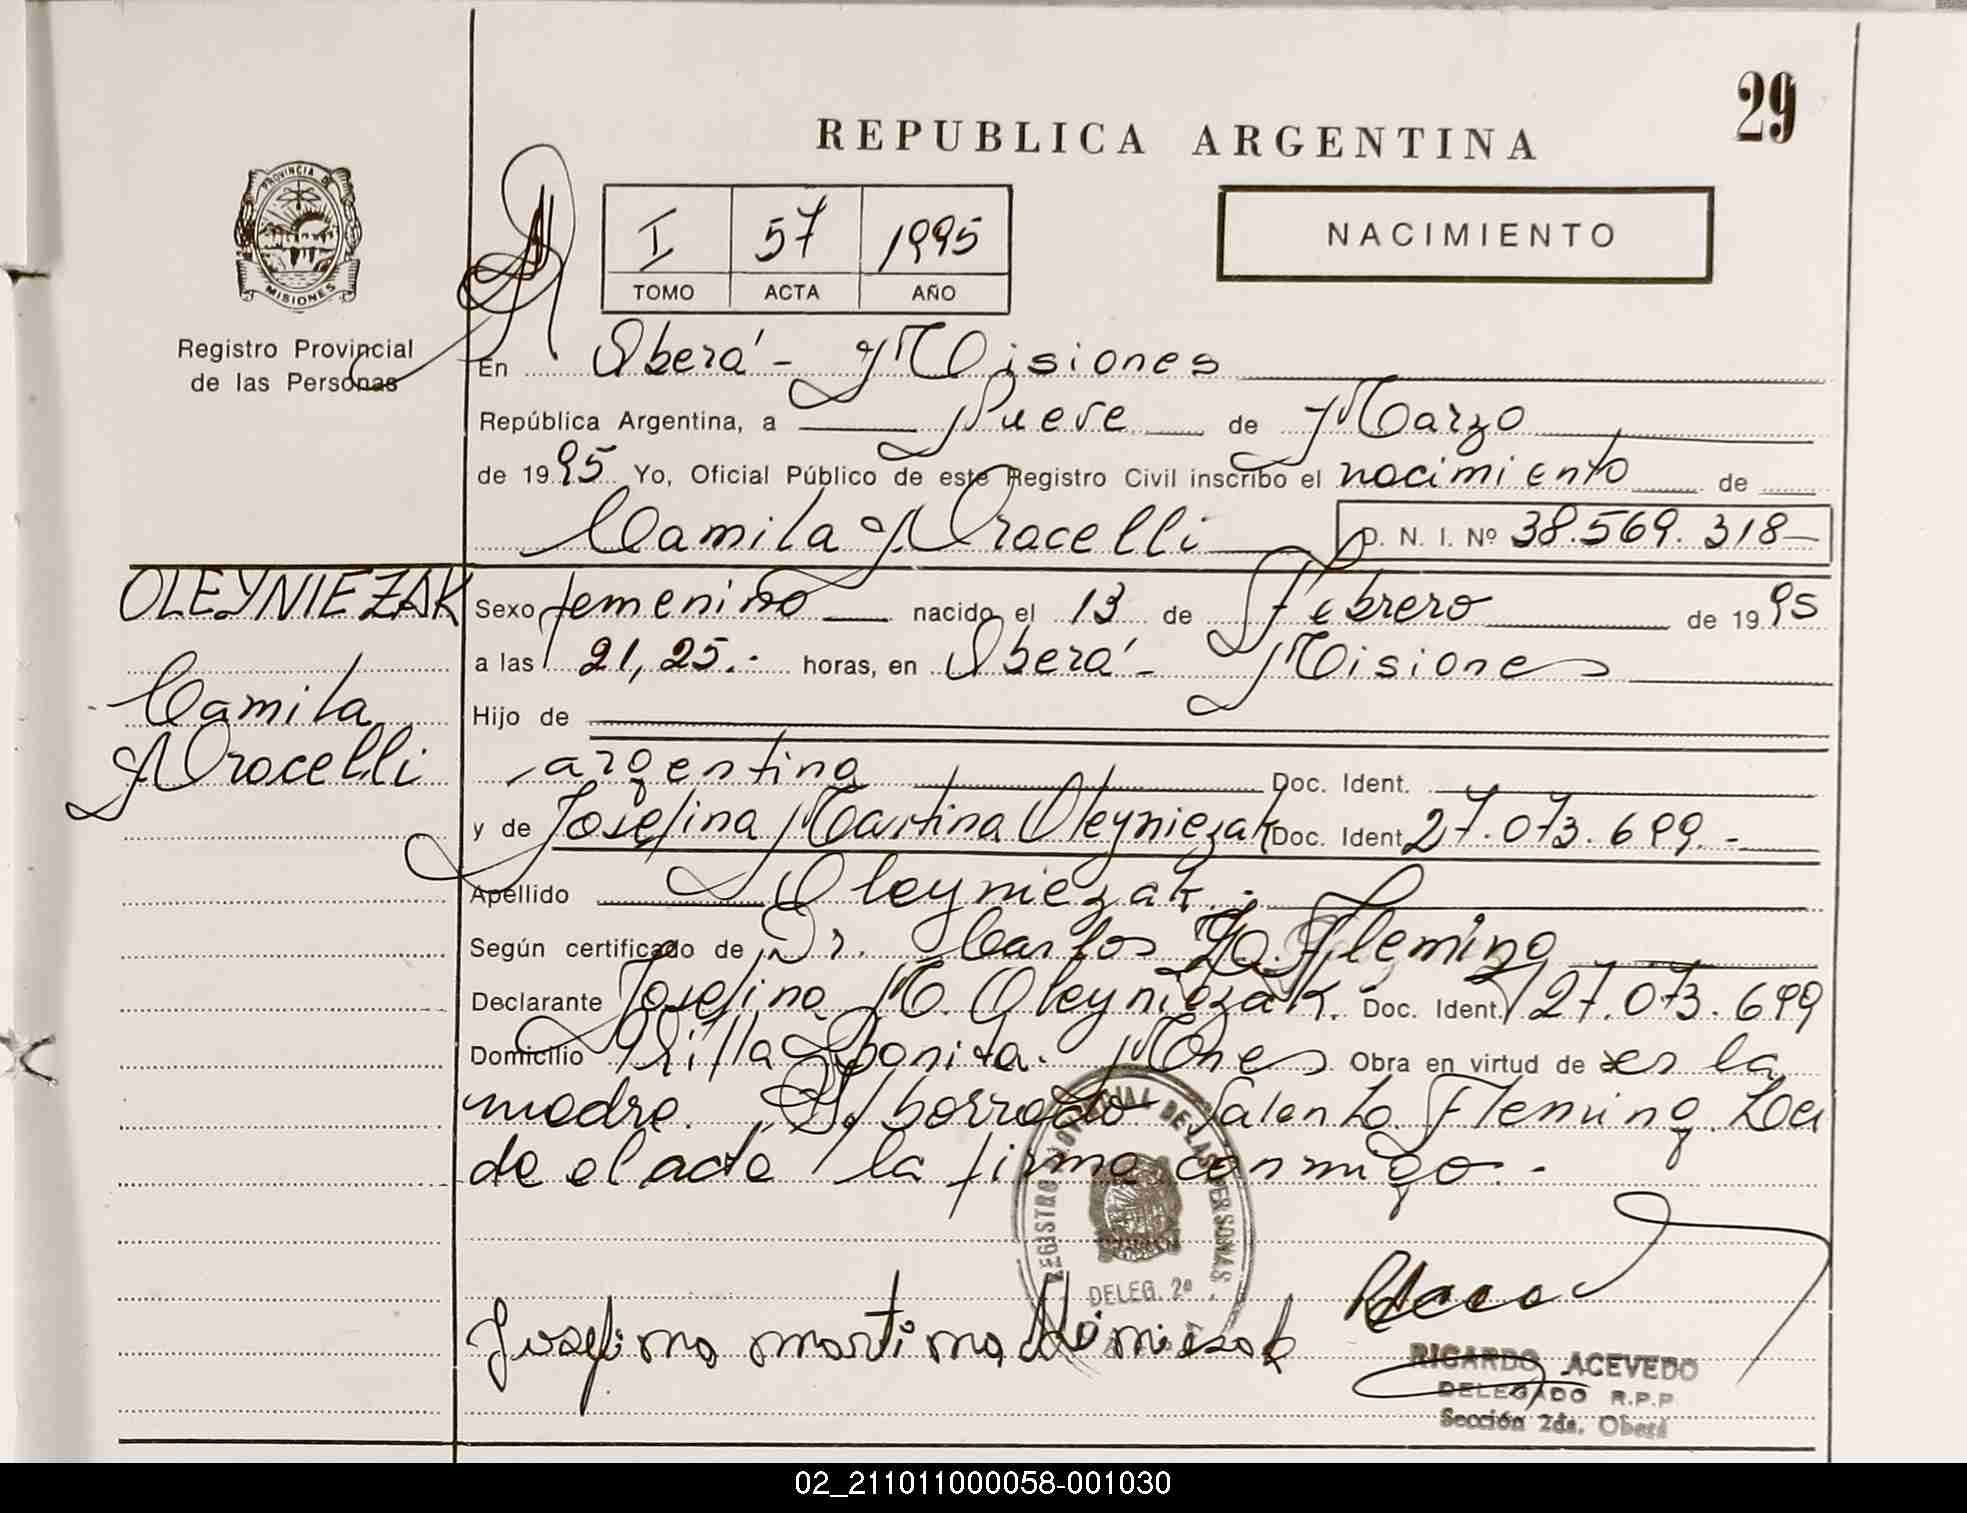 29
REPUBLICA ARGENTINA
PROVINCIA DE
MISIONES
Registro Provincial
de las Personas
I 57 1995
TOMO ACTA AÑO
NACIMIENTO
En Oberá - Misiones
República Argentina, a Nueve de Marzo
de 1995 Yo, Oficial Público de este Registro Civil inscribo el nacimiento de
Camila Aracelli D. N. I. Nº 38.569.318-
OLEYNIEZAK
Camila
Aracelli
Sexo femenino nacido el 13 de Febrero de 1995
a las 21,25.- horas, en Oberá - Misiones
Hijo de
argentina Doc. Ident.
y de Josefina Martina Oleyniezak Doc. Ident. 27.073.699.-
Apellido Oleyniezak.-
Según certificado de Dr. Carlos Fleming
Declarante Josefina M. Oleyniezak. Doc. Ident. 27.073.699
Domicilio Villa Bonita. Mnes Obra en virtud de ser la
madre. S/borrado Valen to. Fleming. Leí
do el acta la firma conmigo.-
REGISTRO PROVINCIAL DE LAS PERSONAS
DELEG. 2ª
Josefina martina
RICARDO ACEVEDO
DELEGADO R.P.P
Sección 2da. Oberá
02_211011000058-001030